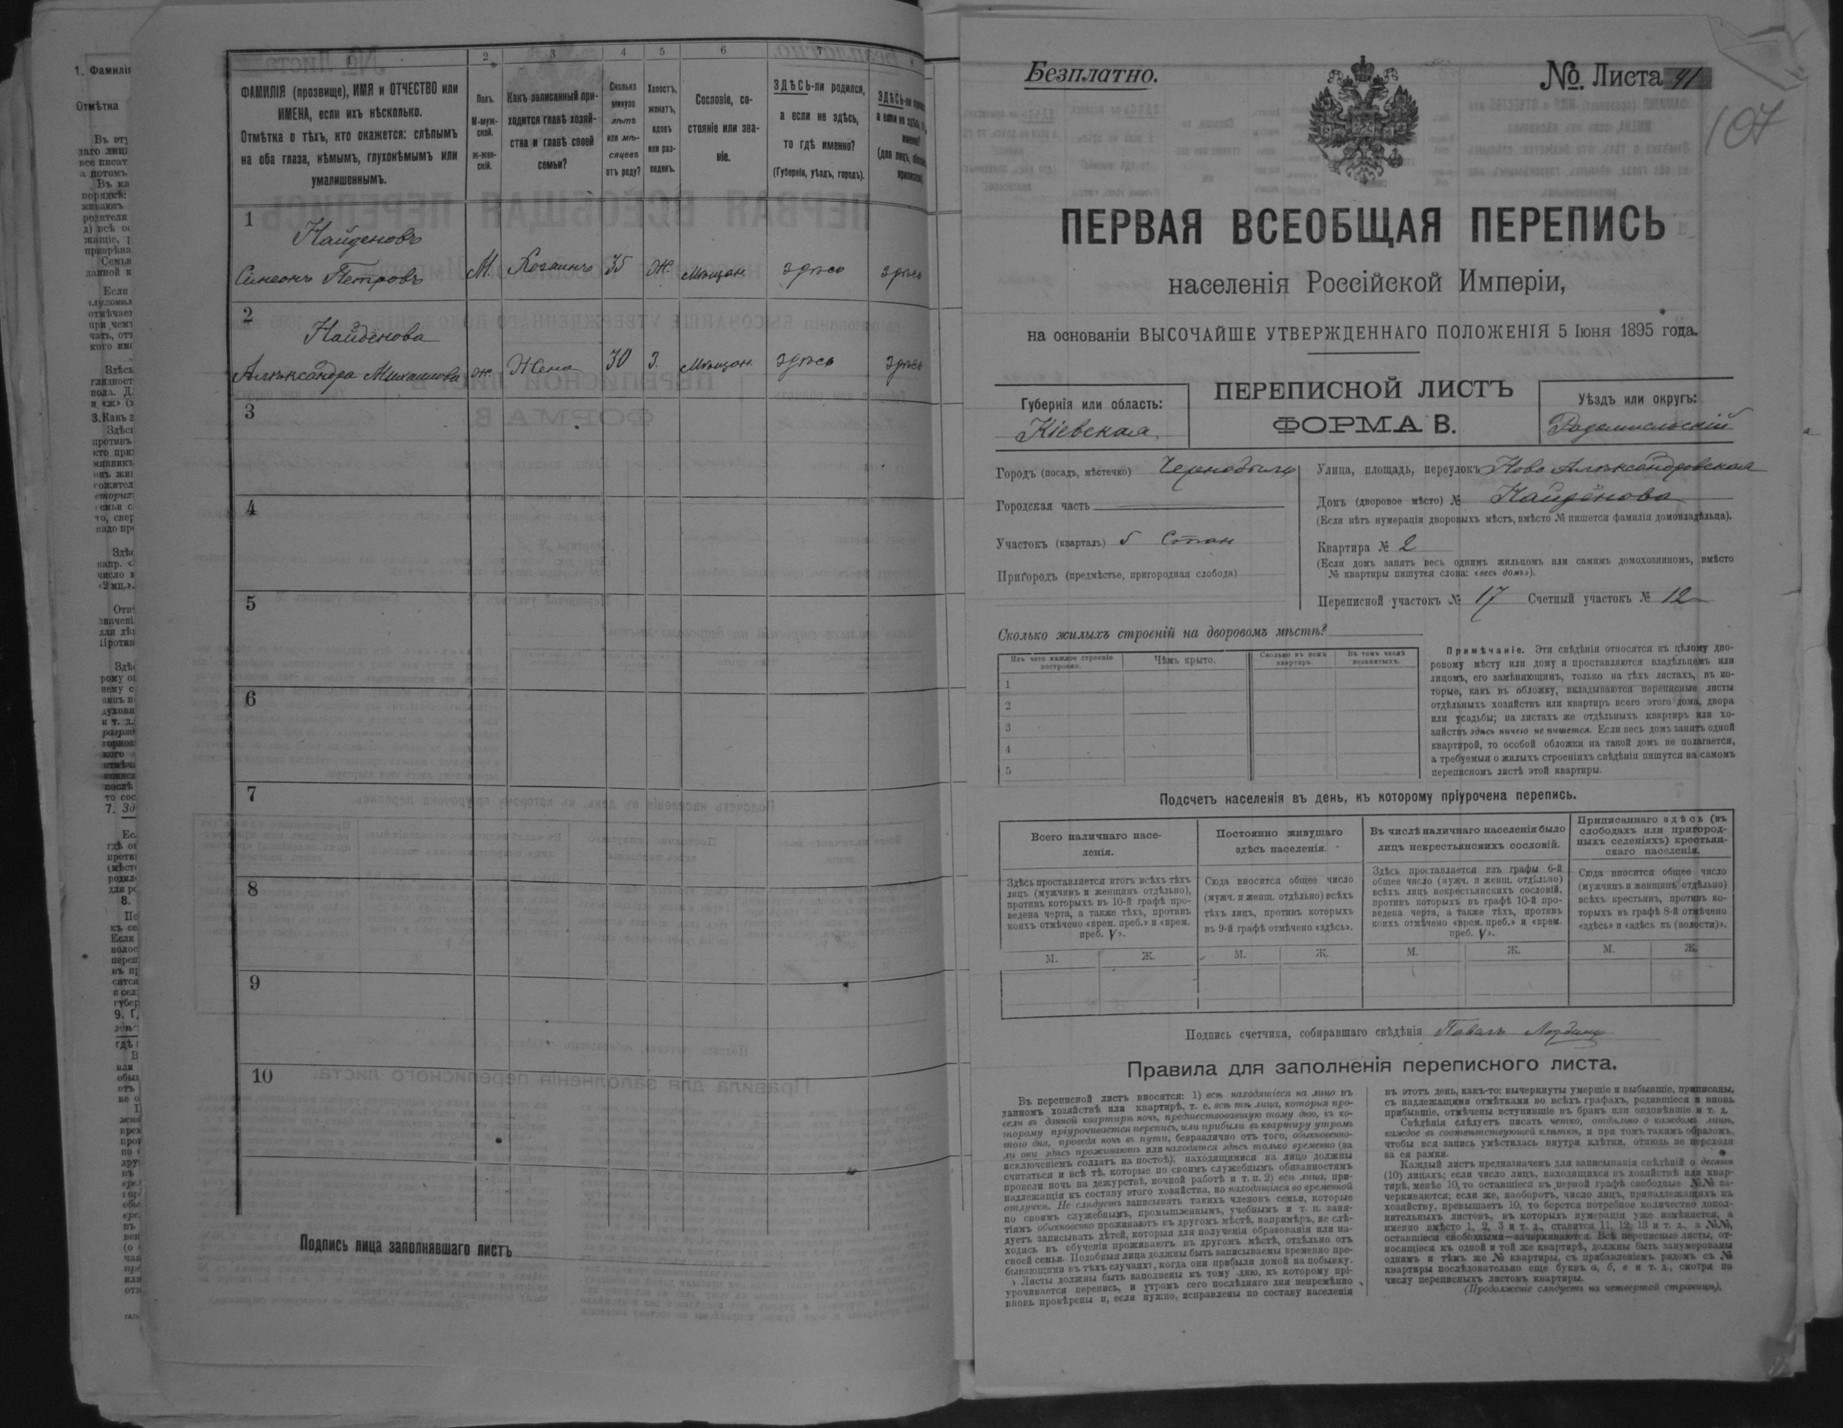 1 2 3 4 5 6 7
ФАМИЛІЯ (прозвище), ИМЯ и ОТЧЕСТВО или
ИМЕНА, если ихъ нѣсколько.
Отмѣтка о тѣхъ, кто окажется: слѣпымъ
на оба глаза, нѣмымъ, глухонѣмымъ или
умалишоннымъ.
Полъ.
М-муж-
ской.
Ж-жен-
скій.
Какъ записанный при-
ходится главѣ хозяй-
ства и главѣ своей
семьи?
Сколько
минуло
лѣтъ
или мѣ-
сяцевъ
отъ роду?
Холостъ,
женатъ,
вдовъ
или раз-
веденъ.
Сословіе, со-
стояніе или зва-
ніе.
ЗДѢСЬ-ли родился,
а если не здѣсь,
то гдѣ именно?
(Губернія, уѣздъ, городъ).
1
Найденовъ
Симеонъ Петровъ М. Хозяинъ 35 Ж. Мѣщан. здѣсь здѣсь
2
Найдёнова
Александра Михаилова ж. Жена 30 З. Мѣщан. здѣсь здѣсь
3
4
5
6
7
8
9
10
Подпись лица заполнявшаго листъ
Безплатно.
№ Листа 91
107
ПЕРВАЯ ВСЕОБЩАЯ ПЕРЕПИСЬ
населенія Россійской Имперіи,
на основаніи ВЫСОЧАЙШЕ УТВЕРЖДЕННАГО ПОЛОЖЕНІЯ 5 Іюня 1895 года.
Губернія или область:
Кіевская
ПЕРЕПИСНОЙ ЛИСТЪ
ФОРМА В.
Уѣздъ или округъ:
Радомысльскій
Городъ (посадъ, мѣстечко) Чернобыль
Городская часть
Участокъ (кварталъ) 5 Стан
Пригородъ (предмѣстье, пригородная слобода)
Улица, площадь, переулокъ Ново Александровская
Домъ (дворовое мѣсто) № Найдёнова
(Если нѣтъ нумераціи дворовыхъ мѣстъ, вмѣсто № пишется фамилія домовладѣльца).
Квартира № 2
(Если домъ занятъ весь однимъ жильцомъ или самимъ домохозяиномъ, вмѣсто
№ квартиры пишутся слова: «весь домъ»).
Переписной участокъ № 17 Счетный участокъ № 12
Сколько жилыхъ строеній на дворовомъ мѣстѣ?
Изъ чего каждое строеніе
построено.
Чѣмъ крыто.
Сколько въ немъ
квартиръ.
Въ томъ числѣ
незанятыхъ.
1
2
3
4
5
Примѣчаніе. Эти свѣдѣнія относятся къ цѣлому дво-
ровому мѣсту или дому и проставляются владѣльцемъ или
лицомъ, его замѣняющимъ, только на тѣхъ листахъ, въ ко-
торые, какъ въ обложку, вкладываются переписные листы
отдѣльныхъ хозяйствъ или квартиръ всего этого дома, двора
или усадьбы; на листахъ же отдѣльныхъ квартиръ или хо-
зяйствъ здѣсь ничего не пишется. Если весь домъ занятъ одной
квартирой, то особой обложки на такой домъ не полагается,
а требуемыя о жилыхъ строеніяхъ свѣдѣнія пишутся на самомъ
переписномъ листѣ этой квартиры.
Подсчетъ населенія въ день, къ которому пріурочена перепись.
Всего наличнаго насе-
ленія.
Постоянно живущаго
здѣсь населенія.
Въ числѣ наличнаго населенія было
лицъ некрестьянскихъ сословій.
Приписаннаго здѣсь (въ
слободахъ или пригород-
ныхъ селеніяхъ) крестьян-
скаго населенія.
Здѣсь проставляется итогъ всѣхъ тѣхъ
лицъ (мужчинъ и женщинъ отдѣльно),
противъ которыхъ въ 10-й графѣ про-
ведена черта, а также тѣхъ, противъ
коихъ отмѣчено «врем. преб.» и «врем.
преб. V».
Сюда вносится общее число
(мужч. и женщ. отдѣльно) всѣхъ
тѣхъ лицъ, противъ которыхъ
въ 9-й графѣ отмѣчено «здѣсь».
Здѣсь проставляется изъ графы 6-й
общее число (мужч. и женщ. отдѣльно)
всѣхъ лицъ некрестьянскихъ сословій,
противъ которыхъ въ графѣ 10-й про-
ведена черта, а также тѣхъ, противъ
коихъ отмѣчено «врем. преб.» и «врем.
преб. V».
Сюда вносится общее число
(мужчинъ и женщинъ отдѣльно)
всѣхъ крестьянъ, противъ ко-
торыхъ въ графѣ 8-й отмѣчено
«здѣсь» и «здѣсь къ (волости)».
М. Ж. М. Ж. М. Ж. М. Ж.
Подпись счетчика, собиравшаго свѣдѣнія Павелъ
Правила для заполненія переписного листа.
Въ переписной листъ вносятся: 1) всѣ находящіеся на лицо въ
данномъ хозяйствѣ или квартирѣ, т. е. всѣ тѣ лица, которыя про-
вели въ данной квартирѣ ночь, предшествовавшую тому дню, къ ко-
торому пріурочивается перепись, или прибыли въ квартиру утромъ
того дня, проведя ночь въ пути, безразлично отъ того, обыкновенно-
ли они здѣсь проживаютъ или находятся здѣсь только временно (за
исключеніемъ солдатъ на постоѣ); находящимися на лицо должны
считаться и всѣ тѣ, которые по своимъ служебнымъ обязанностямъ
провели ночь на дежурствѣ, ночной работѣ и т. п. 2) всѣ лица, при-
надлежащія къ составу этого хозяйства, но находящіяся во временной
отлучкѣ. Не слѣдуетъ записывать такихъ членовъ семьи, которые
по своимъ служебнымъ, промышленнымъ, учебнымъ и т. п. заня-
тіямъ обыкновенно проживаютъ въ другомъ мѣстѣ, напримѣръ, не слѣ-
дуетъ записывать дѣтей, которыя для полученія образованія или на-
ходясь въ обученіи проживаютъ въ другомъ мѣстѣ, отдѣльно отъ
своей семьи. Подобныя лица должны быть записываемы временно пре-
бывающими въ тѣхъ случаяхъ, когда они прибыли домой на побывку.
Листы должны быть заполнены къ тому дню, къ которому прі-
урочивается перепись, и утромъ сего послѣдняго дня непремѣнно
вновь провѣрены и, если нужно, исправлены по составу населенія
въ этотъ день, какъ-то: вычеркнуты умершіе и выбывшіе, приписаны,
съ надлежащими отмѣтками во всѣхъ графахъ, родившіеся и вновь
прибывшіе, отмѣчены вступившіе въ бракъ или овдовѣвшіе и т. д.
Свѣдѣнія слѣдуетъ писать четко, отдѣльно о каждомъ лицѣ,
каждое въ соотвѣтствующей клѣткѣ, и при томъ такимъ образомъ,
чтобы вся запись умѣстилась внутри клѣтки, отнюдь не переходя
за ея рамки.
Каждый листъ предназначенъ для записыванія свѣдѣній о десяти
(10) лицахъ; если число лицъ, находящихся въ хозяйствѣ или квар-
тирѣ, менѣе 10, то оставшіеся въ первой графѣ свободные №№ за-
черкиваются; если же, наоборотъ, число лицъ, принадлежащихъ къ
хозяйству, превышаетъ 10, то берется потребное количество допол-
нительныхъ листовъ, въ которыхъ нумерація уже измѣняется, а
именно вмѣсто 1, 2, 3 и т. д., ставится 11, 12, 13 и т. д., а №№,
оставшіеся свободными—зачеркиваются. Всѣ переписные листы, от-
носящіеся къ одной и той же квартирѣ, должны быть занумерованы
однимъ и тѣмъ же № квартиры, съ прибавленіемъ рядомъ съ №
квартиры послѣдовательно еще буквъ а, б, в и т. д., смотря по
числу переписныхъ листовъ квартиры.
(Продолженіе слѣдуетъ на четвертой страницѣ).